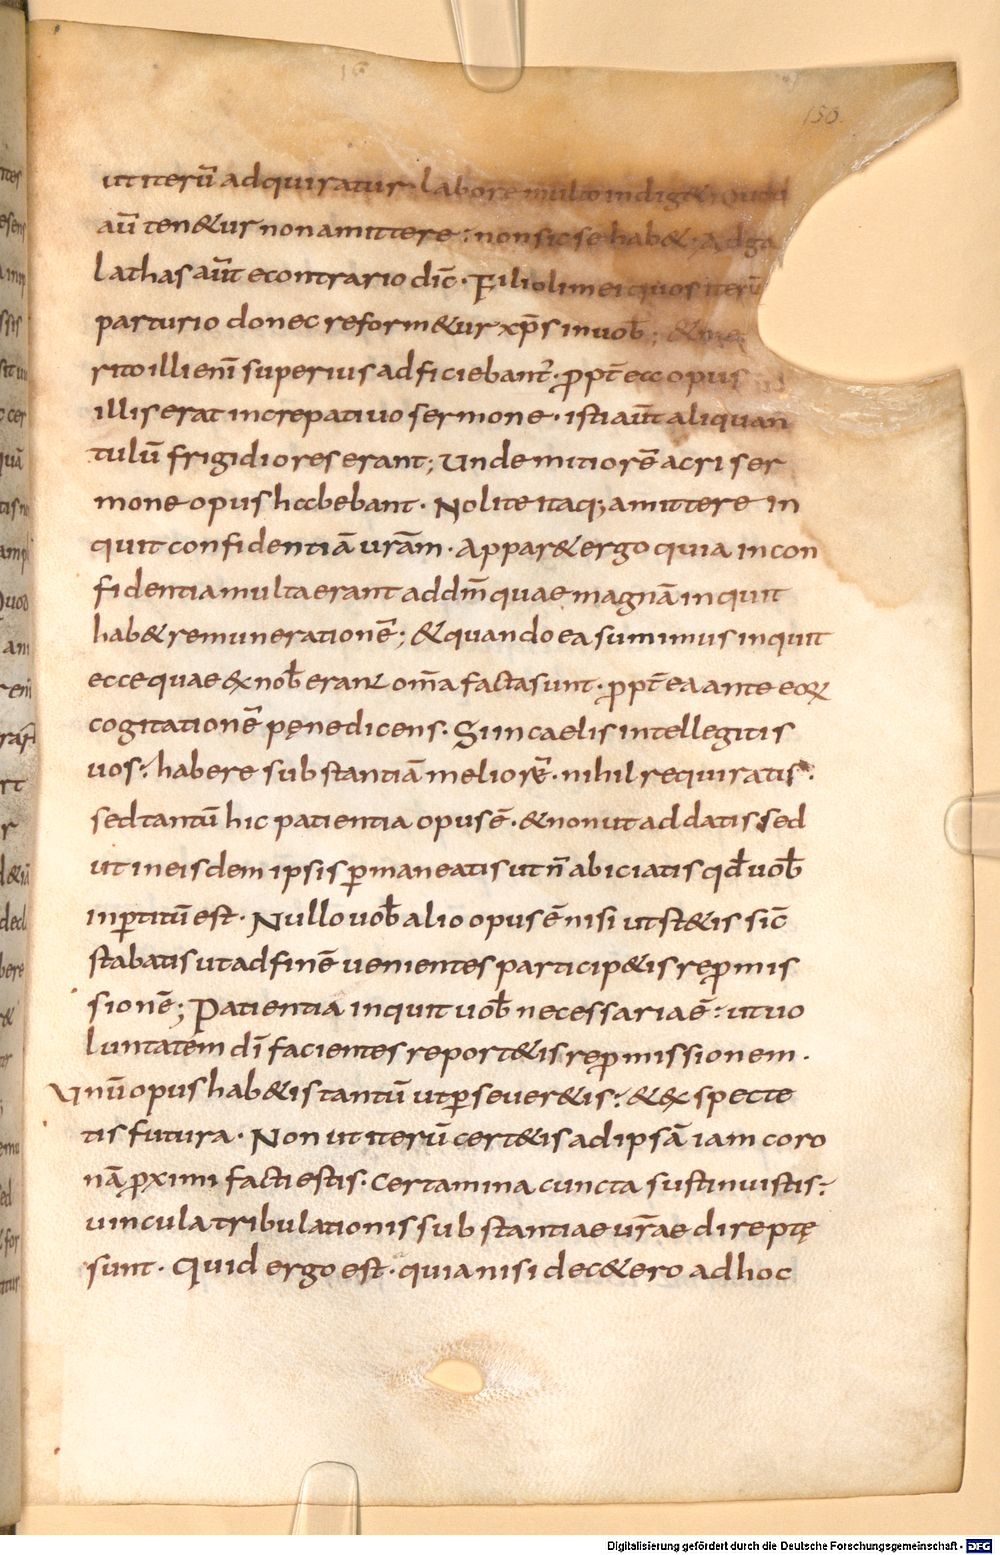 150.
ut iterū adquiratur labore multo indiget; Quod
aūt ten&ur non amittere : non sic se hab& · Ad ga
lathas aūt econtrario dic̄ · Filioli mei quos iterū
parturio donec reform&ur xp̄s in uob̄ ; & me
rito illi enī superius adficiebant̄ · ꝓpt̄ ecc opus
illis erat increpatiuo sermone · isti aūt aliquan
tulū frigidiores erant ; Unde mitiorē acri ser
mone opus hccbebant · Nolite itaq; amittere in
quit confidentiā urām · Appar& ergo quia in con
fidentia multa erant ad dm̄ quae magnā inquit
hab& remunerationē ; & quando ea sumimus inquit
ecce quae & nob̄ erant om̄a facta sunt · ꝓpt̄ ea ante eoꝝ
cogitationē pęne dicens · Si in caelis intellegitis
uos : habere substantiā meliorē · nihil requiratis :
sed tantū hic patientia opus ē · & non ut addatis sed
ut in eisdem ipsis ꝑmaneatis ut n̄ abiciatis qd̄ uob̄
inꝑtitū est · Nullo uob̄ alio opus ē nisi ut st&is sic̄
stabatis ut ad finē uenientes particip&is reꝓmis
sionē ; Patientia inquit uob̄ necessaria ē : ut uo
luntatem dī facientes report&is reꝓmissionem ·
Unū opus hab&is tantū ut ꝑseuer&is : & exspecte
tis futura · Non ut iterū cert&is ad ipsā iam coro
nā ꝓximi facti estis · Certamina cuncta sustinuistis :
uincula tribulationis substantiae urāe direptę
sunt · Quid ergo est · quia nisi dec&ero ad hoc
Digitalisierung gefördert durch die Deutsche Forschungsgemeinschaft - DFG